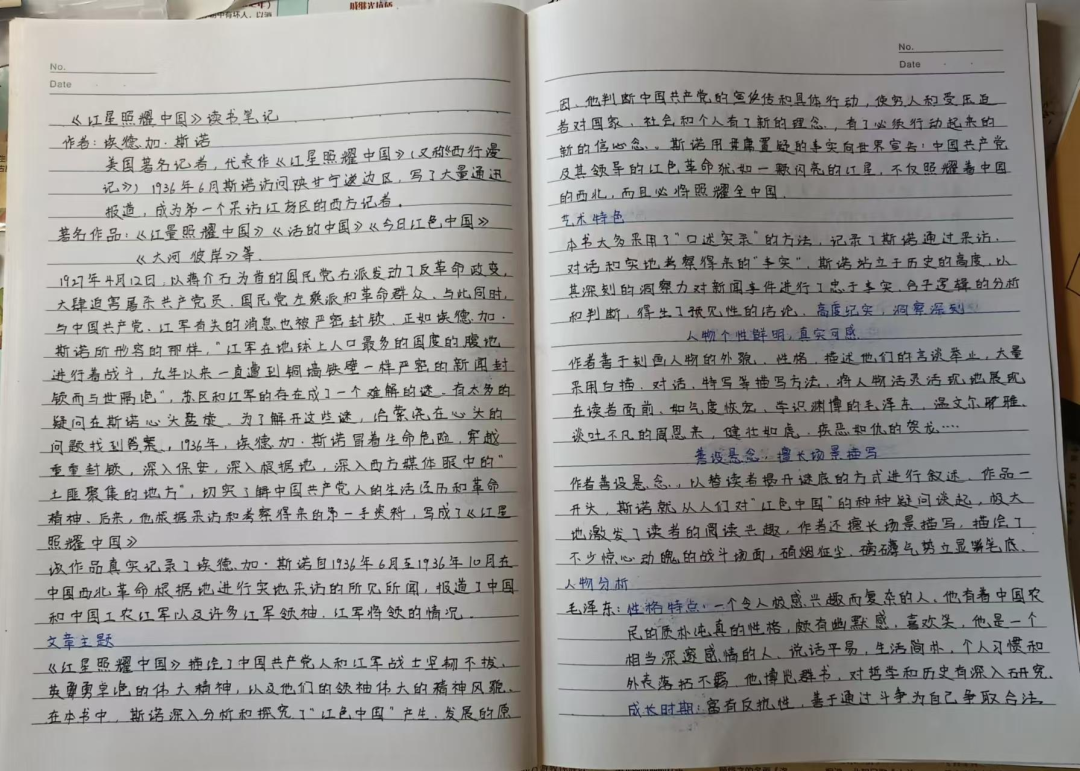 No.
Date
《红星照耀中国》读书笔记
作者：埃德加·斯诺
美国著名记者，代表作《红星照耀中国》（又称《西行漫
记》）1936年6月斯诺访问陕甘宁边区，写了大量通讯
报道，成为第一个采访红区的西方记者。
著名作品：《红星照耀中国》《活的中国》《今日红色中国》
《大河彼岸》等.
1927年4月12日，以蒋介石为首的国民党右派发动了反革命政变，
大肆迫害屠杀共产党员、国民党左派和革命群众，与此同时，
与中国共产党、红军有关的消息也被严密封锁，正如埃德加·
斯诺所形容的那样，"红军在地球上人口最多的国度的腹地
进行着战斗，九年以来一直遭到铜墙铁壁一样严密的新闻封
锁而与世隔绝"，苏区和红军的存在成了一个难解的谜，有太多的
疑问在斯诺心头盘旋，为了解开这些谜，给萦绕在心头的
问题找到答案，1936年，埃德加·斯诺冒着生命危险，穿越
重重封锁，深入保安，深入根据地，深入西方媒体眼中的"
土匪聚集的地方"，切实了解中国共产党人的生活经历和革命
精神、后来，他根据采访和考察得来的第一手资料，写成了《红星
照耀中国》
该作品真实记录了埃德加·斯诺自1936年6月至1936年10月在
中国西北革命根据地进行实地采访的所见所闻，报道了中国
和中国工农红军以及许多红军领袖、红军将领的情况.
文章主题
《红星照耀中国》描绘了中国共产党人和红军战士坚韧不拔、
英勇卓绝的伟大精神，以及他们的领袖伟大的精神风貌.
在本书中，斯诺深入分析和探究了"红色中国"产生、发展的原
No.
Date
因，他判断中国共产党的宣传和具体行动，使穷人和受压迫
者对国家、社会和个人有了新的理念，有了必须行动起来的
新的信念。斯诺用毋庸置疑的事实向世界宣告：中国共产党
及其领导的红色革命犹如一颗闪亮的红星，不仅照耀着中国
的西北，而且必将照耀全中国.
艺术特色
本书大多采用了"口述实录"的方法，记录了斯诺通过采访、
对话和实地考察得来的"事实"，斯诺站立于历史的高度，以
其深刻的洞察力对新闻事件进行了忠于事实、合乎逻辑的分析
和判断，得出了预见性的结论，高度纪实，洞察深刻
人物个性鲜明，真实可感
作者善于刻画人物的外貌、性格，描述他们的言谈举止，大量
采用白描、对话、特写等描写方法，将人物活灵活现地展现
在读者面前，如气度恢宏、学识渊博的毛泽东，温文尔雅、
谈吐不凡的周恩来，健壮如虎、疾恶如仇的贺龙……
善设悬念，擅长场景描写
作者善设悬念，以替读者揭开谜底的方式进行叙述，作品一
开头，斯诺就从人们对"红色中国"的种种疑问谈起，极大
地激发了读者的阅读兴趣，作者还擅长场景描写，描绘了
不少惊心动魄的战斗场面，硝烟征尘、磅礴气势立显笔底.
人物分析
毛泽东：性格特点：一个令人极感兴趣而复杂的人，他有着中国农
民的质朴纯真的性格，颇有幽默感，喜欢笑，他是一个
相当深邃感情的人，说话平易，生活简朴，个人习惯和
外表落拓不羁，他博览群书，对哲学和历史有深入研究.
成长时期：富有反抗性，善于通过斗争为自己争取合法